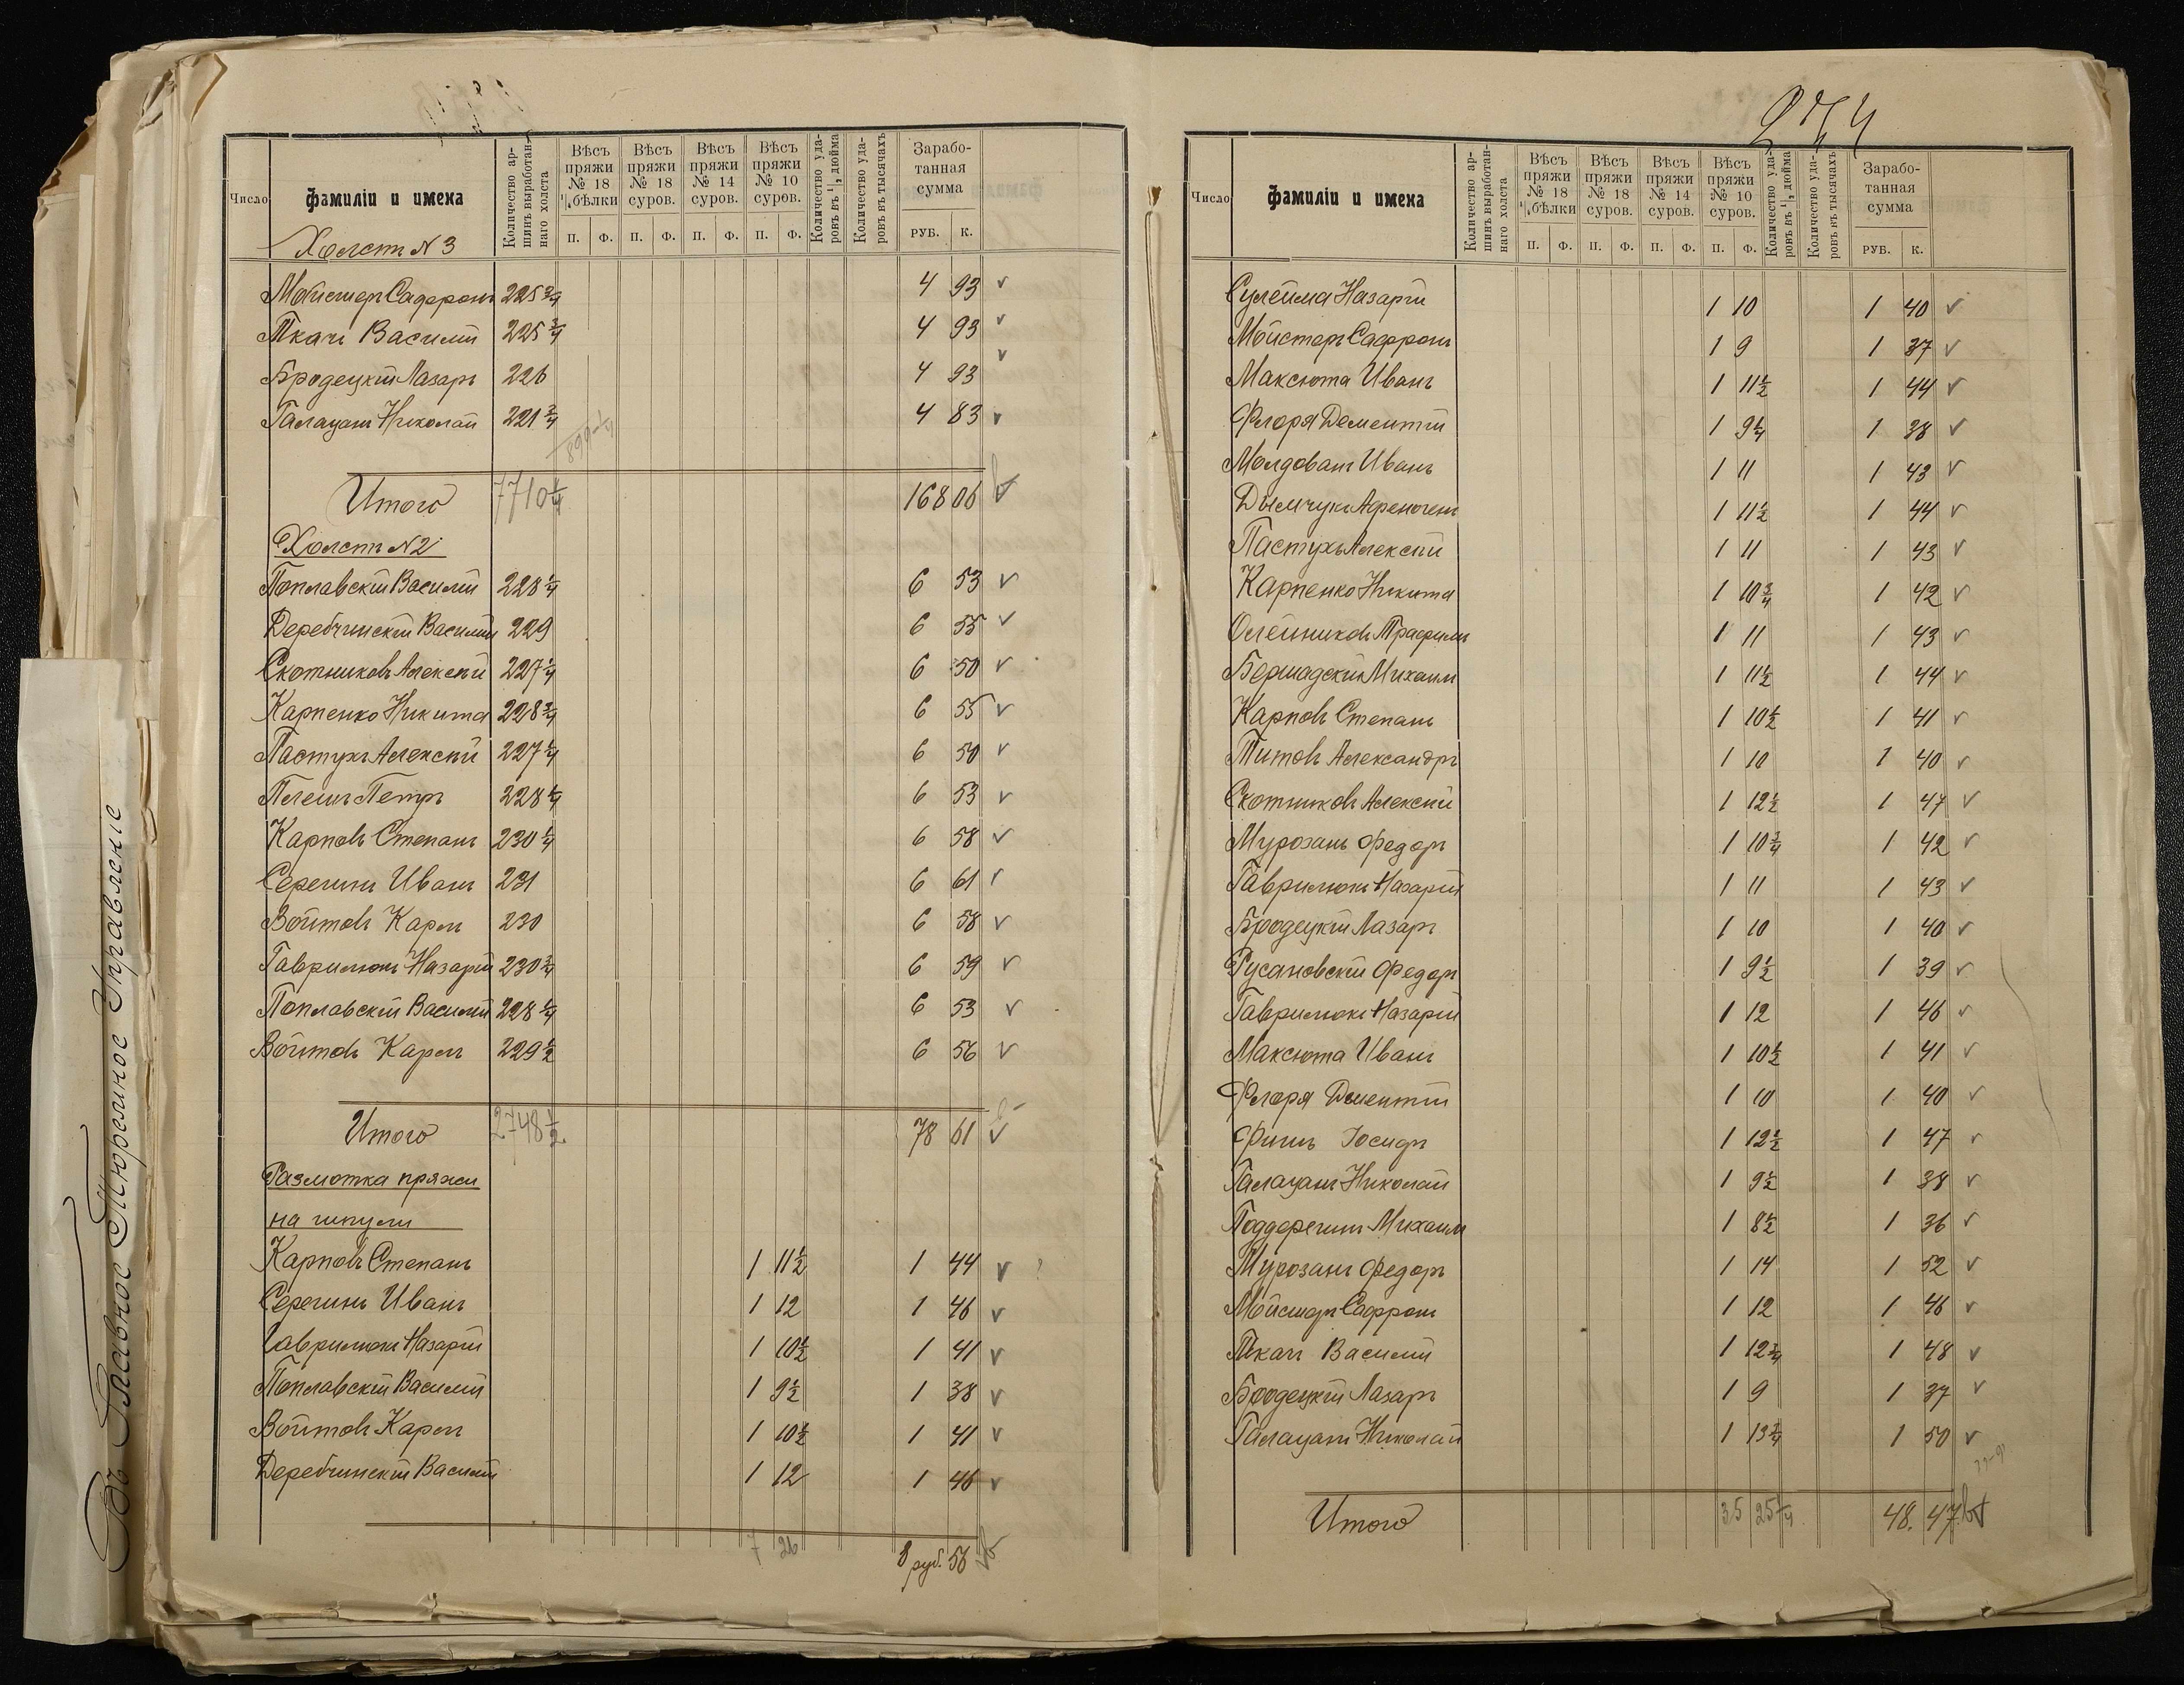 Въ Главное Тюремное Управленіе
Число
Фамиліи и имена
Количество аршинъ выработаннаго холста
Вѣсъ пряжи № 18 ¼ бѣлки
Вѣсъ пряжи № 18 суров.
Вѣсъ пряжи № 14 суров.
Вѣсъ пряжи № 10 суров.
Количество ударовъ въ ¼ дюйма
Количество ударовъ въ тысячахъ
Заработанная сумма
П. Ф. П. Ф. П. Ф. П. Ф. РУБ. К.
Холстъ № 3
Мойстеръ Сафронъ 225 ¾ 4 93
Ткачъ Василій 225 ¾ 4 93
Бродецкій Лазарь 226 4 93
Галацанъ Николай 221 ¾ 4 83
899 ¼
Итого 7710 ¼ 168 06
Холстъ № 2
Поплавскій Василій 228 ¼ 6 53
Деребчинскій Василій 229 6 55
Скотниковъ Алексѣй 227 ¼ 6 50
Карпенко Никита 228 ¾ 6 55
Пастухъ Алексѣй 227 ¼ 6 50
Петръ 228 ¼ 6 53
Карповъ Степанъ 230 ¼ 6 58
Серегинъ Иванъ 231 6 61
Войтовъ Карлъ 230 6 58
Гаврилюкъ Назарій 230 ¾ 6 59
Поплавскій Василій 228 ¼ 6 53
Войтовъ Карлъ 229 ½ 6 56
Итого 2748 ½ 78 61
Размотка пряжи
на шпули
Карповъ Степанъ 1 11 ½ 1 44
Серегинъ Иванъ 1 12 1 46
Гаврилюкъ Назарій 1 10 ½ 1 41
Поплавскій Василій 1 9 ½ 1 38
Войтовъ Карлъ 1 10 ½ 1 41
Деребчинскій Василій 1 12 1 46
7 26 8 руб. 56
274
Число
Фамиліи и имена
Количество аршинъ выработаннаго холста
Вѣсъ пряжи № 18 ¼ бѣлки
Вѣсъ пряжи № 18 суров.
Вѣсъ пряжи № 14 суров.
Вѣсъ пряжи № 10 суров.
Количество ударовъ въ ¼ дюйма
Количество ударовъ въ тысячахъ
Заработанная сумма
П. Ф. П. Ф. П. Ф. П. Ф. РУБ. К.
Сулейма Назарій 1 10 1 40
Мойстеръ Сафронъ 1 9 1 37
Максюта Иванъ 1 11 ½ 1 44
Флоря Дементій 1 9 ¼ 1 38
Молдованъ Иванъ 1 11 1 43
Дымчукъ 1 11 ½ 1 44
Пастухъ Алексѣй 1 11 1 43
Карпенко Никита 1 10 ¾ 1 42
Олейниковъ Трафимъ 1 11 1 43
Бершадскій Михаилъ 1 11 ½ 1 44
Карповъ Степанъ 1 10 ½ 1 41
Титовъ Александръ 1 10 1 40
Скотниковъ Алексѣй 1 12 ½ 1 47
Мурозанъ Федоръ 1 10 ¾ 1 42
Гаврилюкъ Назарій 1 11 1 43
Бродецкій Лазарь 1 10 1 40
Русановскій Федоръ 1 9 ½ 1 39
Гаврилюкъ Назарій 1 12 1 46
Максюта Иванъ 1 10 ½ 1 41
Флоря Дементій 1 10 1 40
Фишъ Іосифъ 1 12 ½ 1 47
Галацанъ Николай 1 9 ½ 1 38
Поддерегинъ Михаилъ 1 8 ½ 1 36
Мурозанъ Федоръ 1 14 1 52
Мойстеръ Сафронъ 1 12 1 46
Ткачъ Василій 1 12 ¾ 1 48
Бродецкій Лазарь 1 9 1 37
Галацанъ Николай 1 13 ¾ 1 50
Итого 35 25 ¼ 48. 47